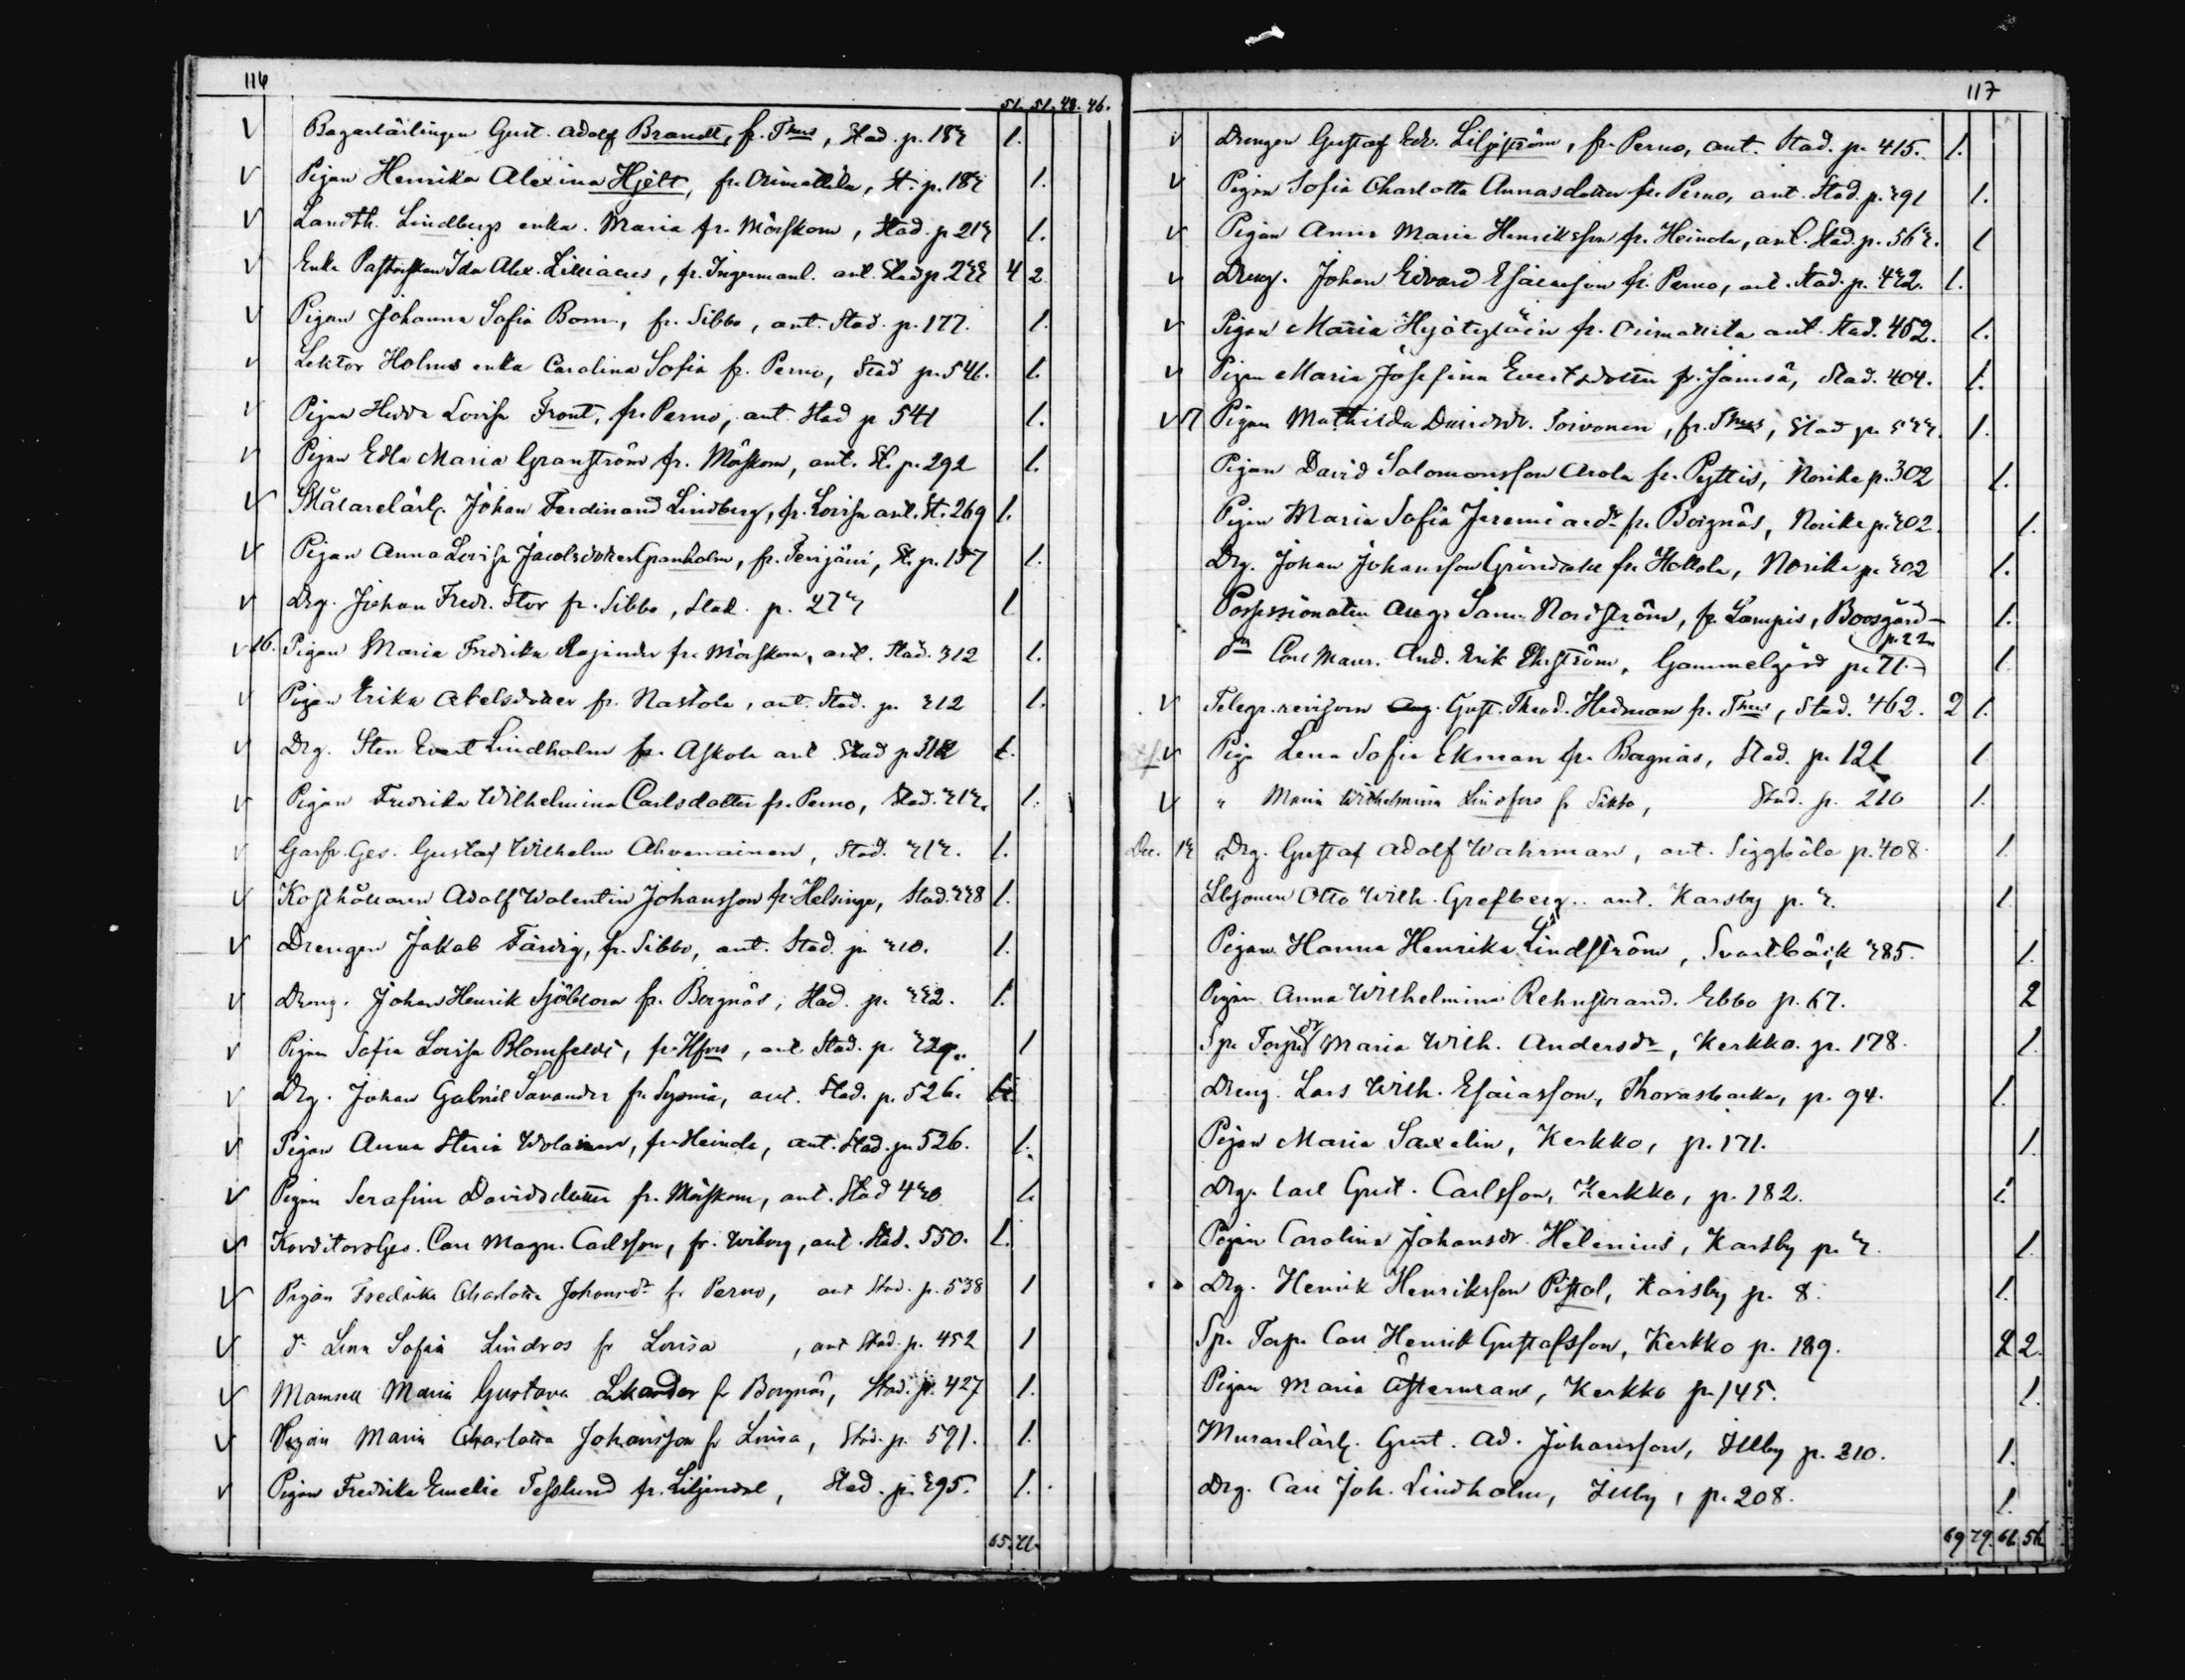 116
51. 51. 48. 46.
V Bagarlärlingen Gust. Adolf Brandt, fr. Thus, Stad. p. 183 1.
V Pigan Henrika Alexina Hjelt, fr. Orimattila, St. p. 183 1.
V Landth. Lindbergs enka Maria fr. Mörskom, Stad. p. 213 1.
V Enka Pastorskan Ida Alex. Lilliacus, fr. Ingermanl. ant. Stad p. 233 4 2
V Pigan Johanna Sofia Bom, fr. Sibbo, ant. Stad. p. 177. 1.
V Lektor Holms enka Carolina Sofia fr. Perno, Stad p. 546. 1.
V Pigan Hedda Lovisa Front, fr. Perno, ant. Stad p 541 1.
V Pigan Edla Maria Granström fr. Mörskom, ant. St. p. 292 1.
V Målarelärl. Johan Ferdinand Lindberg, fr. Lovisa ant. St. 269 1.
V Pigan Anna Lovisa Jacobsdotter Granholm, fr. Fer, St. p. 157 1.
V Drg. Johan Fredr. Stor fr. Sibbo, Stad. p. 273 1
V 16. Pigan Maria Fredrika Rajander fr. Mörskom, ant. Stad. 312 1.
V Pigan Erika Abelsdotter fr. Nastola, ant. Stad. p. 312 1.
V Drg. Sten Evert Lindholm fr. Askola ant. Stad p. 312 1.
V Pigan Fredrika Wilhelmina Carlsdotter fr. Perno, Stad. 313. 1.
V Garfv. Ges. Gustaf Wilhelm Ahvenainen, Stad. 313. 1.
V Kosthållaren Adolf Walentin Johansson fr. Helsinge, Stad. 338 1.
V Drengen Jakob Färdig, fr. Sibbo, ant. Stad. p. 310. 1.
V Dreng. Johan Henrik Sjöblom fr. Borgnäs, Stad. p. 332. 1.
V Pigan Sofia Lovisa Blomfeldt, fr. Hfors, ant. Stad. p. 329. 1
V Drg. Johan Gabriel Savander fr. Sysmä, ant. Stad. p. 526. 1.
V Pigan Anna Stina, fr. Heinola, ant. Stad. p. 526. 1.
V Pigan Serafina Davidsdotter fr. Mörskom, ant. Stad 430 1.
V Konditors Ges. Carl Magn. Carlsson, fr. Wiborg, ant. Stad. 550. 1.
V Pigan Fredrika Charlotta Johansdr fr Perno, ant Stad. p. 538 1
V d:o Lena Sofia Lindros fr Lovisa, ant Stad. p. 452 1
V Mamsell Maria Gustava Lkander fr Borgnäs, Stad. p. 427 1.
V Pigan Maria Charlotta Johansson fr Lovisa, Stad. p. 591. 1.
V Pigan Fredrika Emelie Tesslund fr. Liljendal, Stad. p. 395. 1.
65. 71.
117
V Drengen Gustaf Edv. Liljström, fr. Perno, ant. Stad. p. 415. 1.
V Pigan Sofia Charlotta Annasdotter fr. Perno, ant. Stad. p. 391 1.
V Pigan Anna Maria Henriksson fr. Heinola, ant. Stad. p. 563. 1
V Dreng. Johan Edvard Esaiasson fr. Perno, ant. Stad. p. 432. 1.
V Pigan Maria fr. Orimattila ant. Stad. 452. 1.
V Pigan Maria Josefina Evertsdotter fr. Jämsä, Stad. 404. 1.
V 17 Pigan Mathilda Davidsdr. Toivonen, fr. Thus, Stad p. 533. 1.
Pigan David Salomonsson Arola fr. Pyttis, Norike p. 302 1.
Pigan Maria Sofia Jeremiaedr fr. Borgnäs, Norike p. 302. 1.
Drg. Johan Johansson Gröndahl fr. Hollola, Norike p. 302 1.
Possessionaten Aug. Sam. Nordström, fr. Lampis, Boesgård p. 22 1.
Dn Carl Maur. And. Erik Ekström, Gammelgård p. 71. 1.
V Telegr. revisorn Aug. Gust. Theod. Hedman fr. Thus, Stad. 462. 2 1.
V Piga Lena Sofia Ekman fr. Borgnäs, Stad. p. 121 1
V " Maria Wilhelmina Lindfors fr Sibbo, Stad. p. 210 1.
Dec. 13 Drg. Gustaf Adolf Wahrman, ant. Siggböle p. 408 1.
Otto Wilh. Grefberg. ant. Karsby p. 3. 1.
Pigan Hanna Henrika Lindström, Svartbäck 385. 1.
Pigan Anna Wilhelmina Rehnstrand. Ebbo p. 67. 2
Sp. Torp. dr Maria Wilh. Andersdr, Kerkko. p. 178. 1.
Dreng. Lars Wilh. Esaiasson, Thorasbacka, p. 94. 1.
Pigan Maria Saxelin, Kerkko, p. 171. 1.
Drg. Carl Gust. Carlsson, Kerkko, p. 182. 1.
Pigan Carolina Johansdr. Helenius, Karsby p. 3. 1.
Drg. Henrik Henriksson Pistol, Karsby p. 8. 1.
Sp. Torp. Carl Henrik Gustafsson, Kerkko p. 189. 2 2.
Pigan Maria Åsterman, Kerkko p. 145. 1.
Murarelärl. Gust. Ad. Johansson, Illby p. 210. 1.
Drg. Carl Joh. Lindholm, Illby, p. 208. 1.
69 79. 61 56